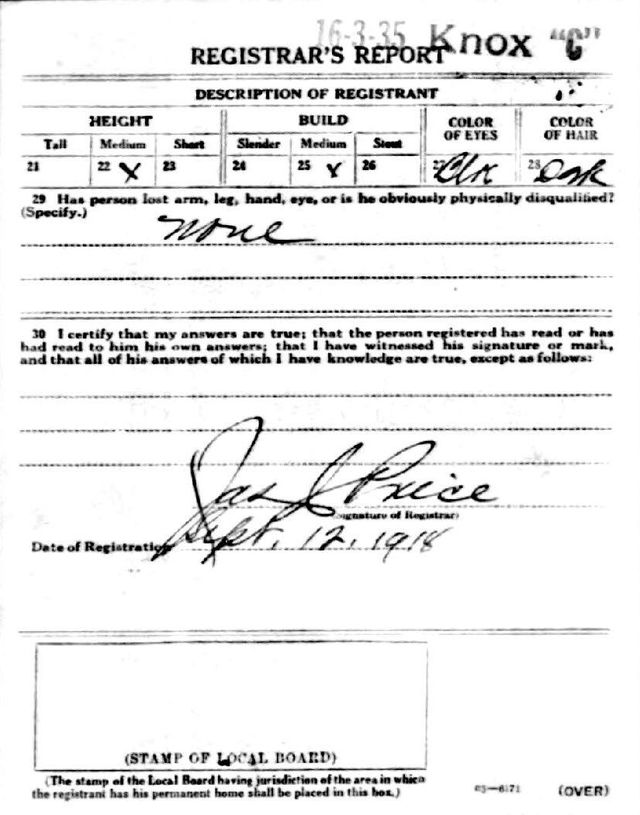 16-3-35 Knox "C"
REGISTRAR'S REPORT
DESCRIPTION OF REGISTRANT
HEIGHT BUILD COLOR OF EYES COLOR OF HAIR
Tall Medium Short Slender Medium Stout
21 22 X 23 24 25 X 26 27 Blk 28 Dark
29 Has person lost arm, leg, hand, eye, or is he obviously physically disqualified?
(Specify.)
None
30 I certify that my answers are true; that the person registered has read or has
had read to him his own answers; that I have witnessed his signature or mark,
and that all of his answers of which I have knowledge are true, except as follows:
Jas J Price
(Signature of Registrar)
Date of Registration Sept. 12, 1918
(STAMP OF LOCAL BOARD)
(The stamp of the Local Board having jurisdiction of the area in which
the registrant has his permanent home shall be placed in this box.)
03—6171 (OVER)